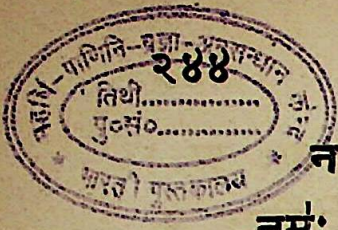 महर्षि-पाणिनि-प्रज्ञा-अनुसन्धान
२४४
तिथी..............
पु०सं०..............
* भारती पुस्तकालय *
न
नमः